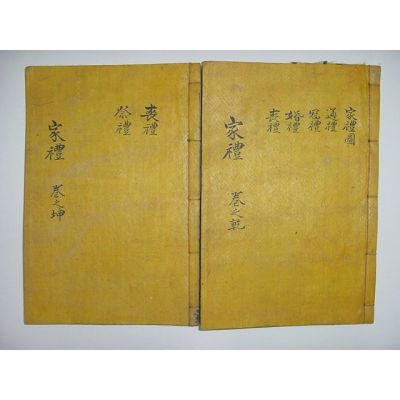 家禮圖
通禮
冠禮
婚禮
喪禮
家禮
卷之乾
喪禮
祭禮
家禮
卷之坤